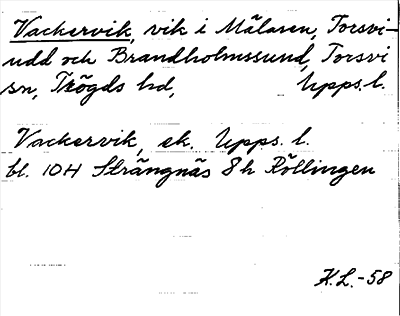 Vackervik, vik i Mälaren, Torsvi-
udd och Brandholmssund, Torsvi
sn, Trögds hd, Upps. l.
Vackervik, ek. Upps. l.
bl. 10H Strängnäs 8h Röllingen
K.L.-58